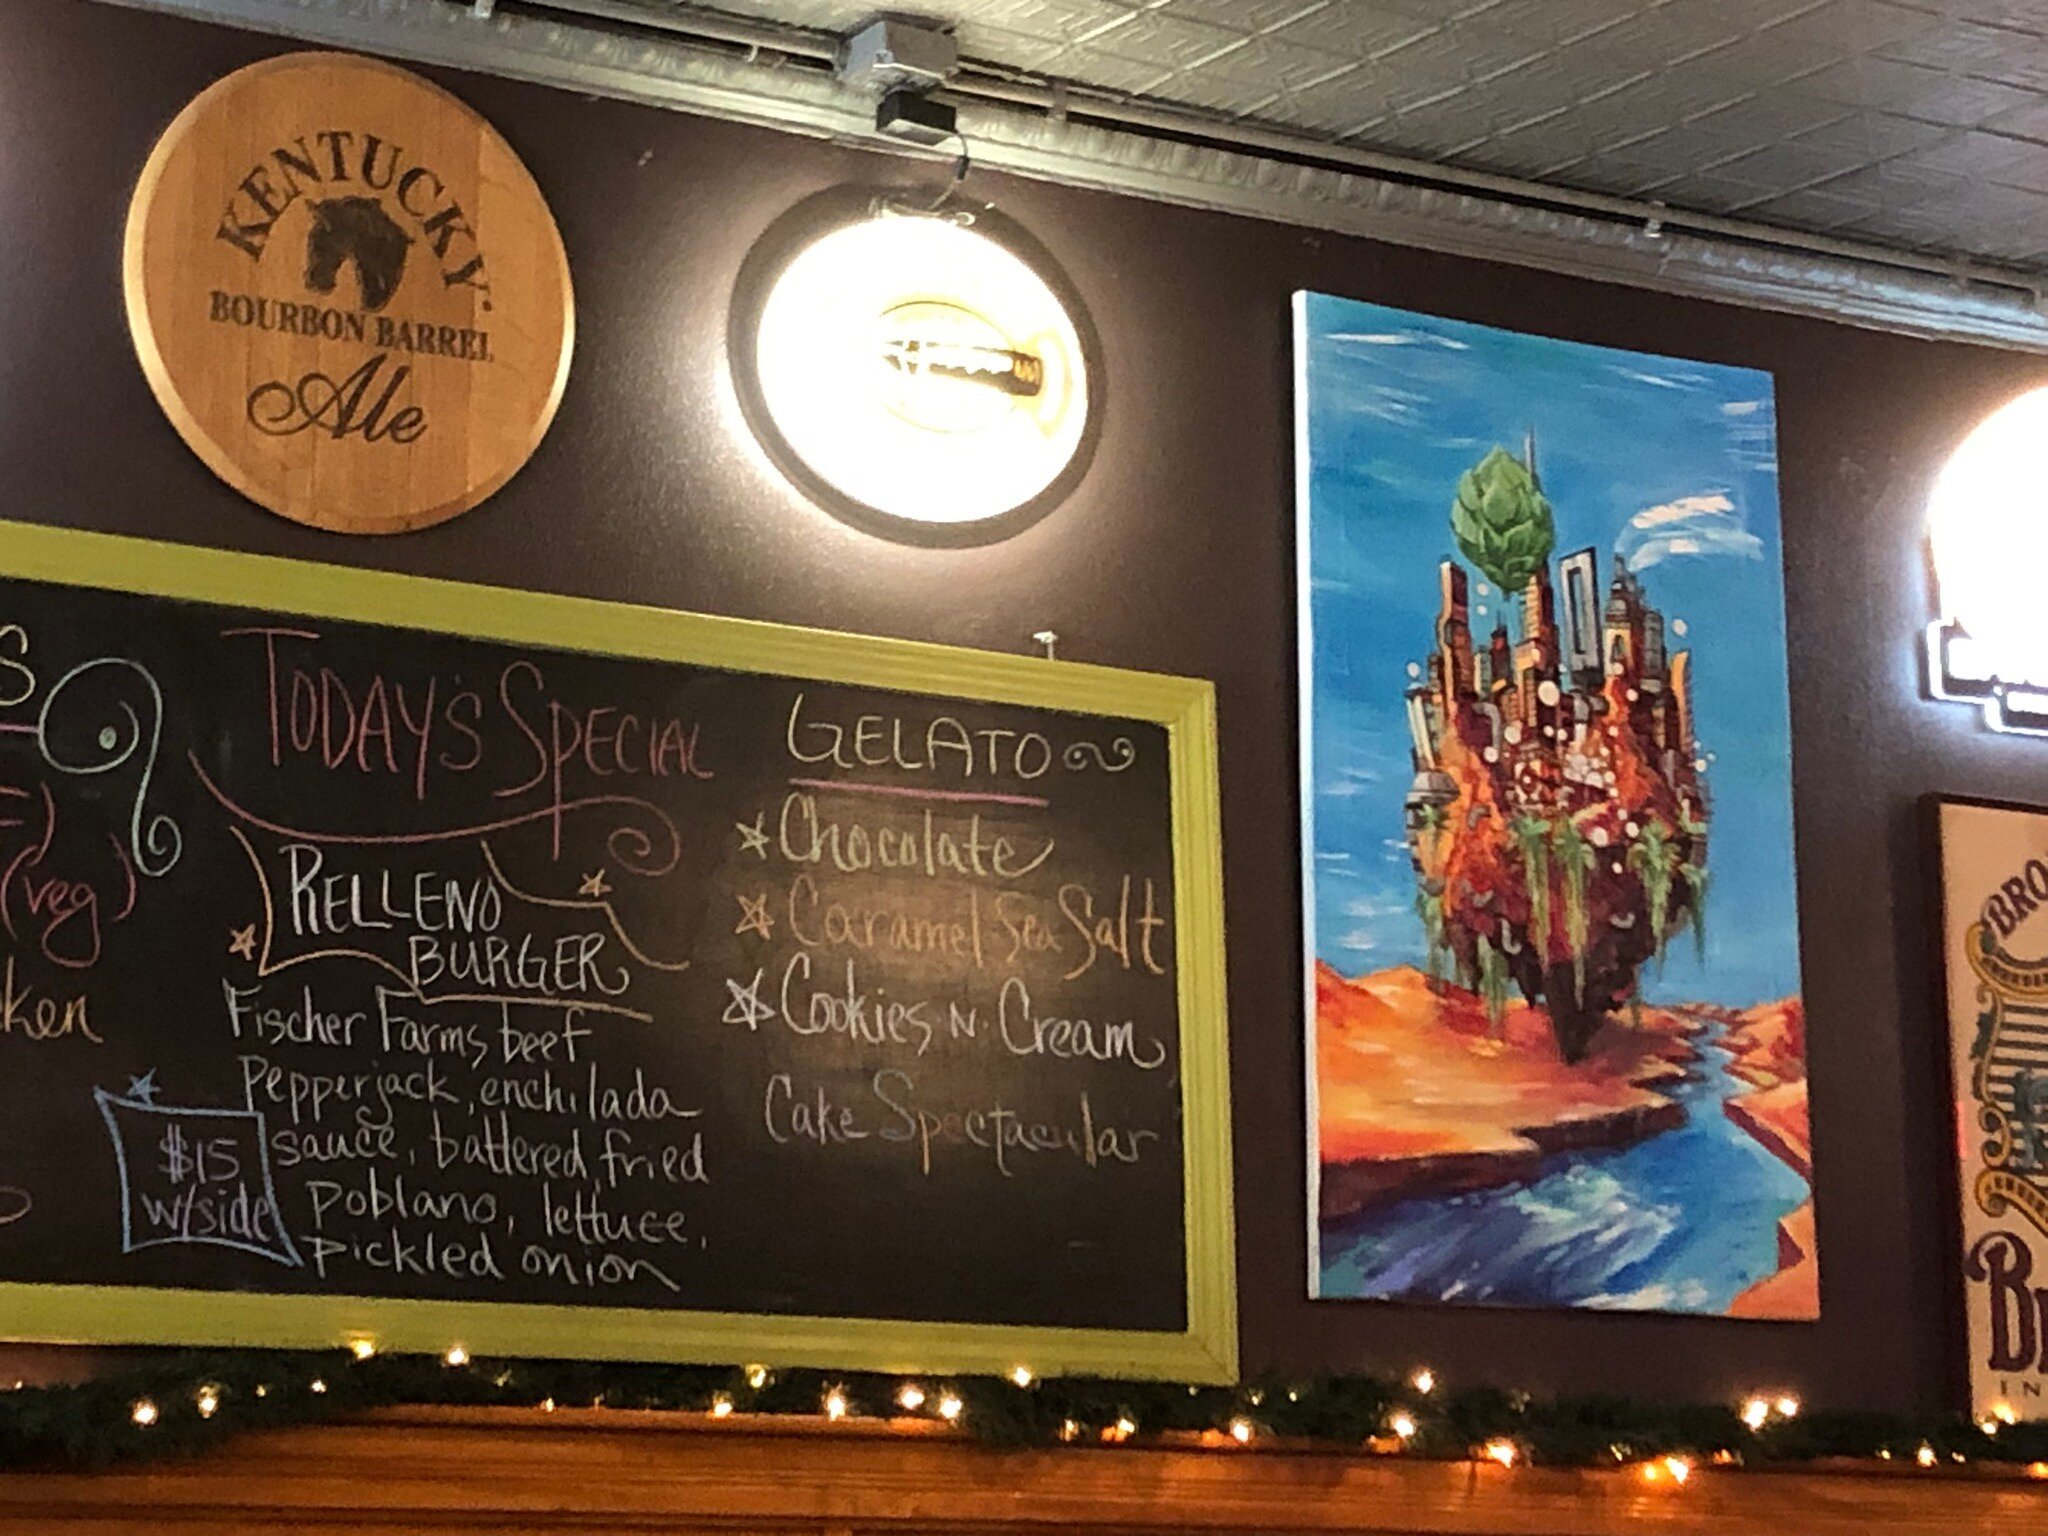 KENTUCKY
BOURBON BARREL
Ale
S
(veg)
ken
TODAY'S SPECIAL
RELLENO
BURGER
Fischer Farms beef
pepperjack, enchilada
sauce, battered, fried
poblano, lettuce,
pickled onion
$15
w/side
GELATO
Chocolate
Caramel Sea Salt
Cookies N. Cream
Cake Spectacular
BRO
BR
IN